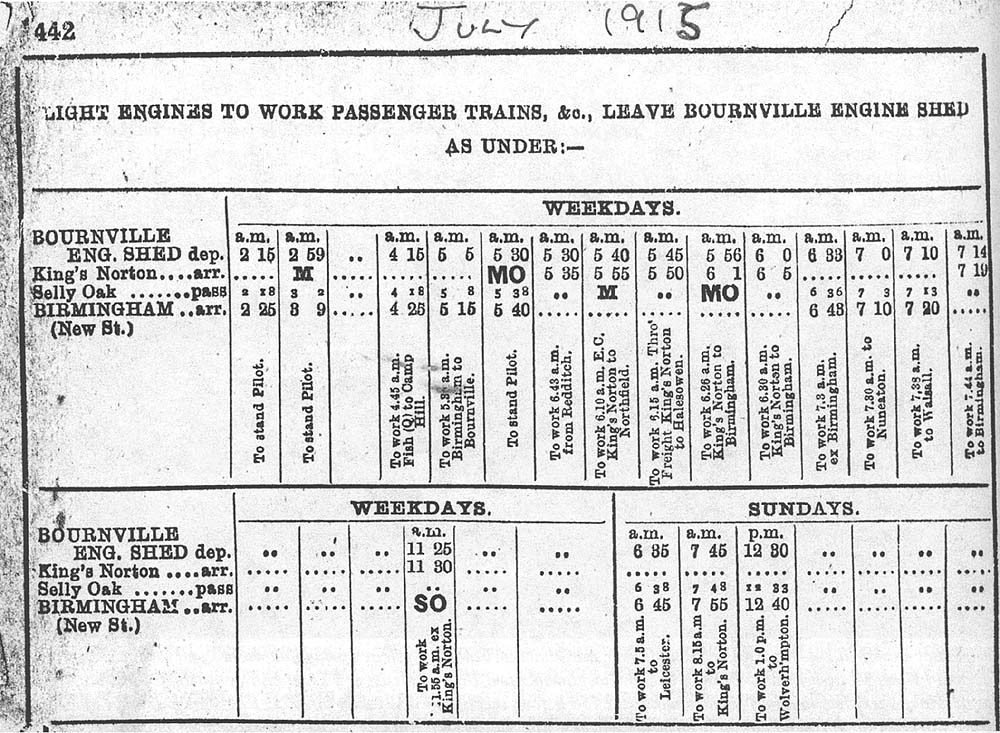 442
July 1915
LIGHT ENGINES TO WORK PASSENGER TRAINS, &c., LEAVE BOURNVILLE ENGINE SHED
AS UNDER:—
WEEKDAYS.
BOURNVILLE a.m. a.m. a.m. a.m. a.m. a.m. a.m. a.m. a.m. a.m. a.m. a.m. a.m. a.m.
ENG. SHED dep. 2 15 2 59 .. 4 15 5 5 5 30 5 30 5 40 5 45 5 56 6 0 6 33 7 0 7 10 7 14
King's Norton....arr. ..... M ..... ..... ..... MO 5 35 5 55 5 50 6 1 6 5 ..... ..... ..... 7 19
Selly Oak .......pass 2 18 3 2 .. 4 18 5 8 5 38 .. M .. MO .. 6 36 7 3 7 13 ..
BIRMINGHAM ..arr. 2 25 3 9 ..... 4 25 5 15 5 40 ..... ..... ..... ..... ..... 6 43 7 10 7 20 .....
(New St.)
To stand Pilot.
To stand Pilot.
To work 4.45 a.m.
Fish (Q) to Camp
Hill.
To work a.m.
Birmingham to
Bournville.
To stand Pilot.
To work 6.43 a.m.
from Redditch.
To work 6.10 a.m. E.C.
King's Norton to
Northfield.
To work 6.15 a.m. Thro'
Freight King's Norton
to Halesowen.
To work 6.26 a.m.
King's Norton to
Birmingham.
To work 6.30 a.m.
King's Norton to
Birmingham.
To work 7.3 a.m.
ex Birmingham.
To work 7.30 a.m. to
Nuneaton.
To work 7.38 a.m.
to Walsall.
To work 7.44 a.m.
to Birmingham.
WEEKDAYS. SUNDAYS.
BOURNVILLE a.m. a.m. a.m. p.m.
ENG. SHED dep. .. .. .. 11 25 .. .. 6 35 7 45 12 30 .. .. .. ..
King's Norton ....arr. ..... ..... ..... 11 30 ..... ..... ..... ..... ..... ..... ..... ..... .....
Selly Oak .......pass .. .. .. .. .. .. 6 38 7 48 12 33 .. .. .. ..
BIRMINGHAM ..arr. ..... ..... ..... SO ..... ..... 6 45 7 55 12 40 ..... ..... ..... .....
(New St.)
To work
11.55 a.m. ex
King's Norton.
To work 7.5 a.m.
to
Leicester.
To work 8.15 a.m.
to
King's Norton.
To work 1.0 p.m.
to
Wolverh'mpton.